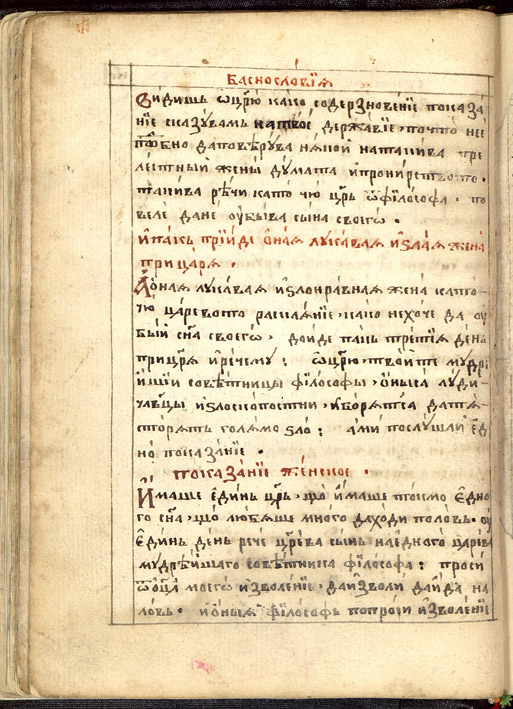 Баснословїѧ
Видишь ѿ царю како содерзновенїе показа
нїе сказувамь на твоѐ державїе, почто нее
подобно даповѣрува на жени натакива пре
лестный жены думата ипронирство то.
такива рѣчи като чю црь ѿ фїлософа. по
веле дане оубыва сына своегѡ.
Ипакь прїиде ѻ́наѧ лукаваѧ иѕлаѧ жена
при царѧ.
Аѻнаѧ лукаваѧ иѕлонравнаѧ жена като
чю царевото раскаѧнїе. како нехоче да оу
бый сна своегѡ, дойде пакь третїѧ день
при црѧ и рече му: ѽ црю, твойте мудрѣ
йшїи совѣтницы фїлософы, ѻныѧ луди
чавцы иѕлоскопостни, иборѧтсѧ датѧ
сторѧть голѧмо ѕло: ами послушай ед
но показанїе.
показанїе женское.
Имаше единь црь, що имаше токмо едно
го сна, що любѧше много даходи половь. оу
единь день рече црева сынь наедного царева
мудрѣйшаго совѣтника фїлософа: проси
ѿ оца моегѡ изволенїе. даизволи даида на
ловь. иѻныѧ фїлософь попроси изволенїе